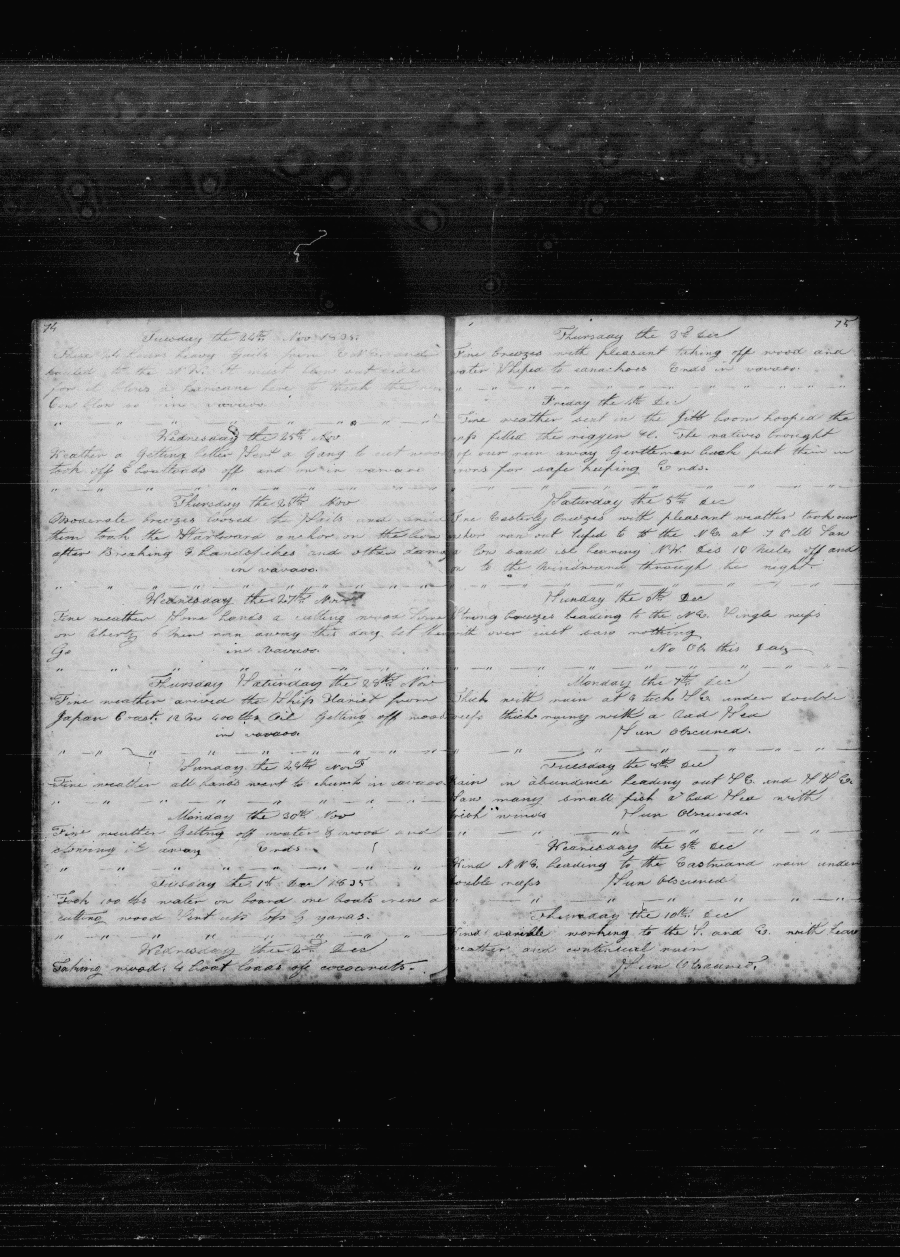 74
Tuesday the 24th Nov 1835.
heavy from
to the N.W. it
for it blows a haricane here to think the
in vavaoo
Wednesday the 25th Nov
Weather a getting better Sent a Gang to cut wood
took off 6 off and on in vavaoo
Thursday the 26th Nov
Moderate breezes loosed the Sails and
them took the Starboard anchor on the bow
after Breaking 4 handspikes and other damage
in vavaoo.
Wednesday the 27th Nov
Fine weather Some hands a cutting wood Some
on liberty 6 men ran away this day let them
Go in vavaoo
Thursday Saturday the 28th Nov
Fine weather arived the Ship from
Japan Coast 12 M 400 bbls Oil Getting off wood
in vavaoo
Sunday the 29th Nov
Fine weather all hands went to church in vavaoo
Monday the 30th Nov
Fine weather Getting off water & wood and
stowing it away Ends
Tuesday the 1st Dec 1835
Took 100 bbls water on board one boats crew a
cutting wood Sent up top G yards.
Wednesday the 2nd Dec
Taking wood. 4 boat loads of cocoanuts.
75
Thursday the 3d Dec
Fine breezes with pleasant taking off wood and
water Shiped to Ends in vavaoo.
Friday the 4th Dec
Fine weather sent in the Jibb boom hooped the
filled the riggen &c. The natives brought
of our run away Gentlemen back put them in
irons for safe keeping Ends.
Saturday the 5th Dec
Fine Easterly breezes with pleasant weather took our
anchor ran out luf'd to the N.E. at 7 P M Saw
a low sand isle bearing N.W. Dis 10 Miles off and
on to the windward through he night.
Sunday the 6th Dec
Strong breezes heading to the N.E. Single reefs
with over cast saw nothing
No Ob this Day
Monday the 7th Dec
Thick with rain at S.E. under double
reefs thick rainy with a bad Sea
Sun Obscured.
Tuesday the 8th Dec
Rain in abundence heading out S.E. and S.S.E.
Saw many small fish a bad Sea with
fresh winds Sun Obscured.
Wednesday the 9th Dec
Wind N N E. heading to the Eastward rain under
double reefs Sun Obscured
Thursday the 10th Dec
Wind variable working to the S. and E. with
weather and continual rain
Sun Obscured.